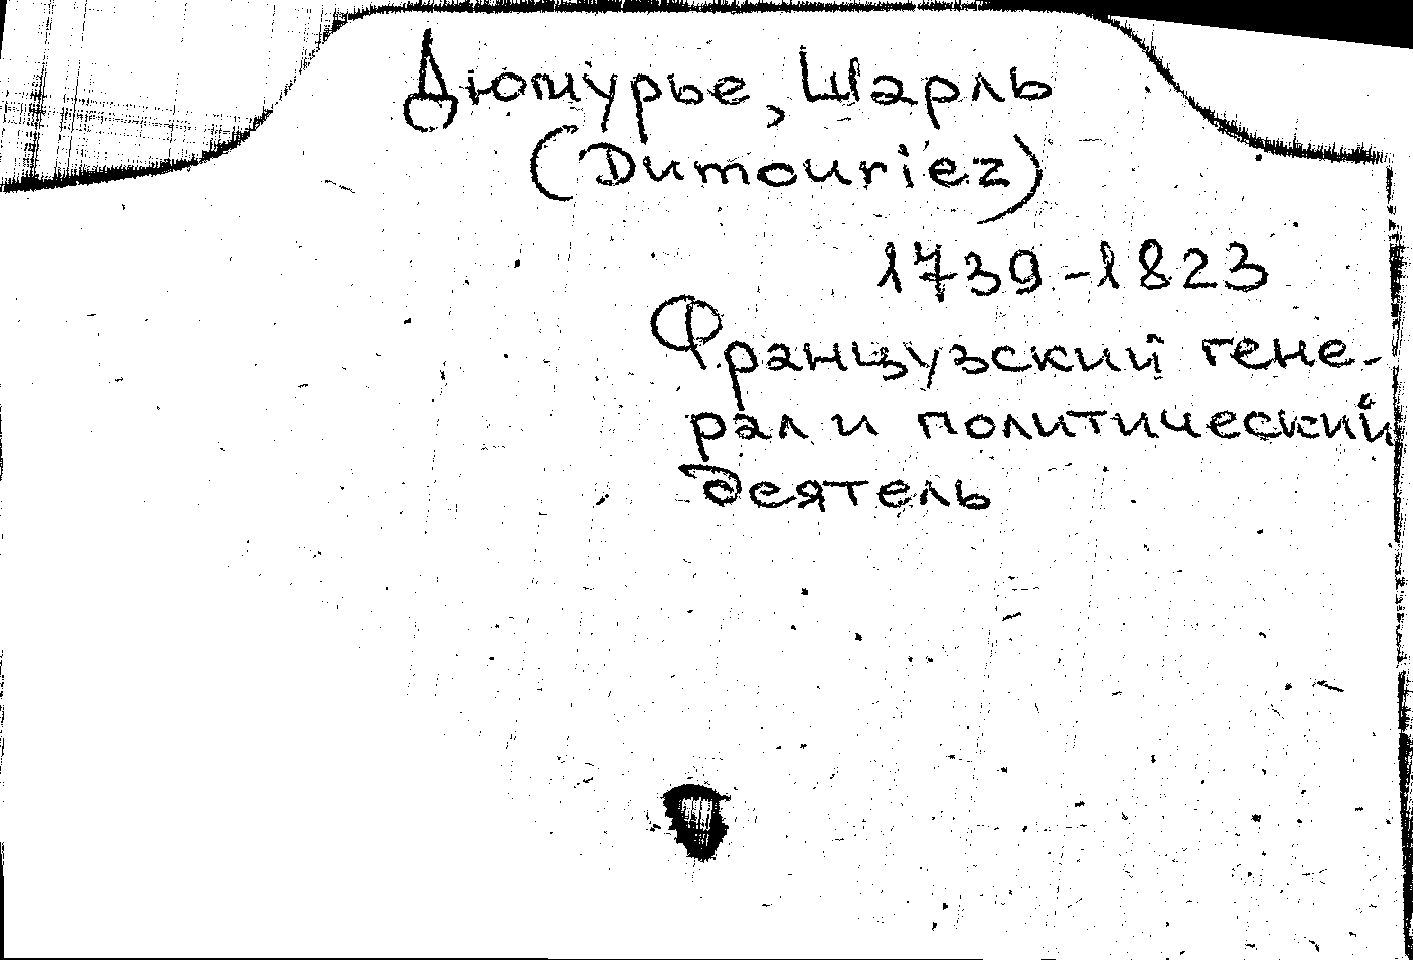 Дюмурье, Шарль
(Dumouriez)
1739-1823
Французский гене-
рал и политический
деятель